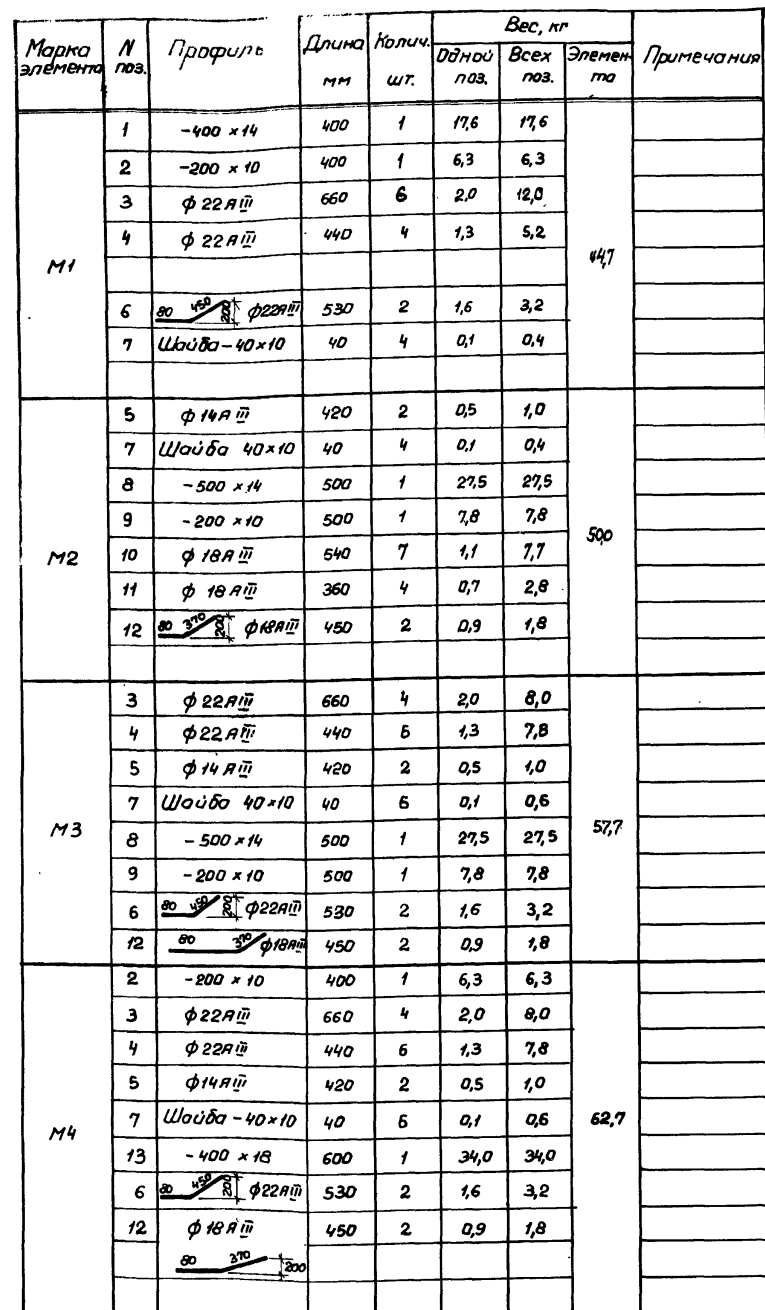 Марка элемента | N поз. | Профиль | Длина мм | Колич. шт. | Вес, кг | Примечания
Одной поз. | Всех поз. | Элемента
М1 | 44,7
1 | -400 × 14 | 400 | 1 | 17,6 | 17,6
2 | -200 × 10 | 400 | 1 | 6,3 | 6,3
3 | ф 22 А III | 660 | 6 | 2,0 | 12,0
4 | ф 22 А III | 440 | 4 | 1,3 | 5,2
6 | 80 450 200 ф22АIII | 530 | 2 | 1,6 | 3,2
7 | Шайба-40×10 | 40 | 4 | 0,1 | 0,4
М2 | 50,0
5 | ф 14А III | 420 | 2 | 0,5 | 1,0
7 | Шайба 40×10 | 40 | 4 | 0,1 | 0,4
8 | -500 × 14 | 500 | 1 | 27,5 | 27,5
9 | -200 × 10 | 500 | 1 | 7,8 | 7,8
10 | ф 18А III | 540 | 7 | 1,1 | 7,7
11 | ф 18 А III | 360 | 4 | 0,7 | 2,8
12 | 80 370 200 ф18АIII | 450 | 2 | 0,9 | 1,8
М3 | 57,7
3 | ф 22А III | 660 | 4 | 2,0 | 8,0
4 | ф 22 А III | 440 | 6 | 1,3 | 7,8
5 | ф 14 А III | 420 | 2 | 0,5 | 1,0
7 | Шайба 40×10 | 40 | 6 | 0,1 | 0,6
8 | - 500 × 14 | 500 | 1 | 27,5 | 27,5
9 | - 200 × 10 | 500 | 1 | 7,8 | 7,8
6 | 80 450 200 ф22АIII | 530 | 2 | 1,6 | 3,2
12 | 80 370 ф18АIII | 450 | 2 | 0,9 | 1,8
М4 | 62,7
2 | -200 × 10 | 400 | 1 | 6,3 | 6,3
3 | ф22А III | 660 | 4 | 2,0 | 8,0
4 | ф 22А III | 440 | 6 | 1,3 | 7,8
5 | ф14А III | 420 | 2 | 0,5 | 1,0
7 | Шайба -40×10 | 40 | 6 | 0,1 | 0,6
13 | - 400 × 18 | 600 | 1 | 34,0 | 34,0
6 | 80 450 200 ф22АIII | 530 | 2 | 1,6 | 3,2
12 | ф 18 А III | 450 | 2 | 0,9 | 1,8
80 370 200